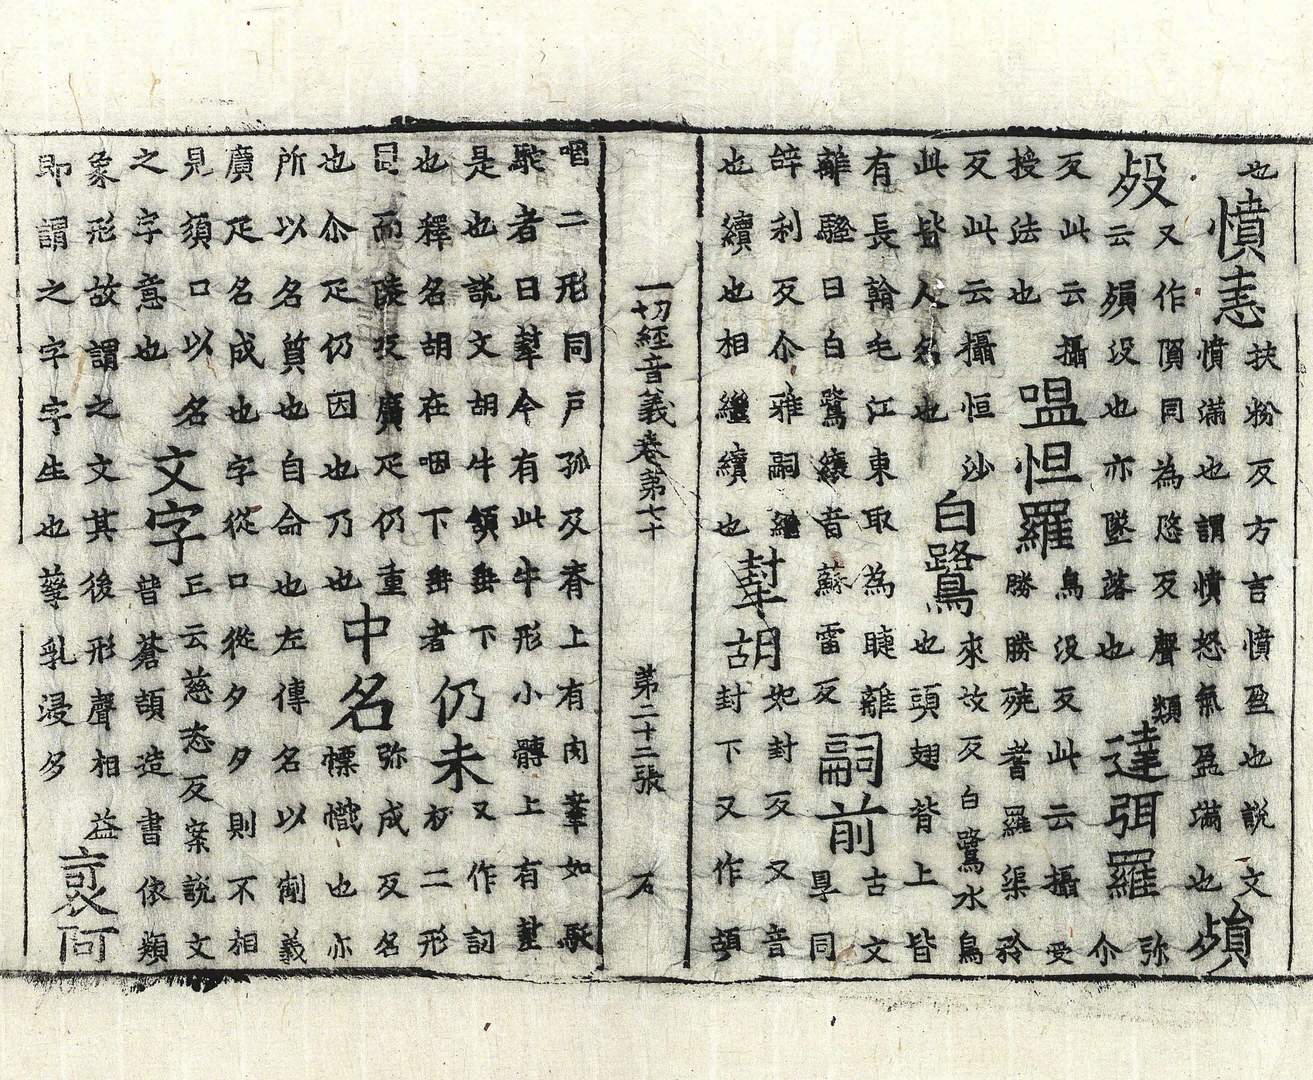 也
憤恚
扶粉反方言憤盈也說文
憤滿也謂憤怒氣盈滿也
殞
歿
又作隕同為愍反聲類
云殞没也亦墜落也
達弭羅
弥
尒
反此云攝
授法也
嗢怛羅
烏没反此云攝受
勝勝殑耆羅渠矜
反此云攝恒沙
此皆人名也
白鷺
來故反白鷺水鳥
也頭翅背上皆
有長翰毛江東取為睫離
離騷曰白鷺縗音蘇雷反
嗣前
古文
同
辝利反尒雅嗣繼
也續也相繼續也
犎胡
妃封反又音
封下又作
一切經音義卷第七十 第二十二張 石
咽二形同戸孤反脊上有肉鞌如駞
駝者曰犎今有此牛形小髆上有犎
是也說文胡牛頷垂下
也釋名胡在咽下垂者
仍未
又作
二形
而陵反廣疋仍重
也尒疋仍因也乃也
中名
弥成反名
慓幟也亦
所以名質也自命也左傳名以制義
廣疋名成也字從口從夕夕則不相
見須口以名
之字意也
文字
正云慈恣反案說文
昔蒼頡造書依類
象形故謂之文其後形聲相益
即謂之字字生也孳乳浸多
裒阿